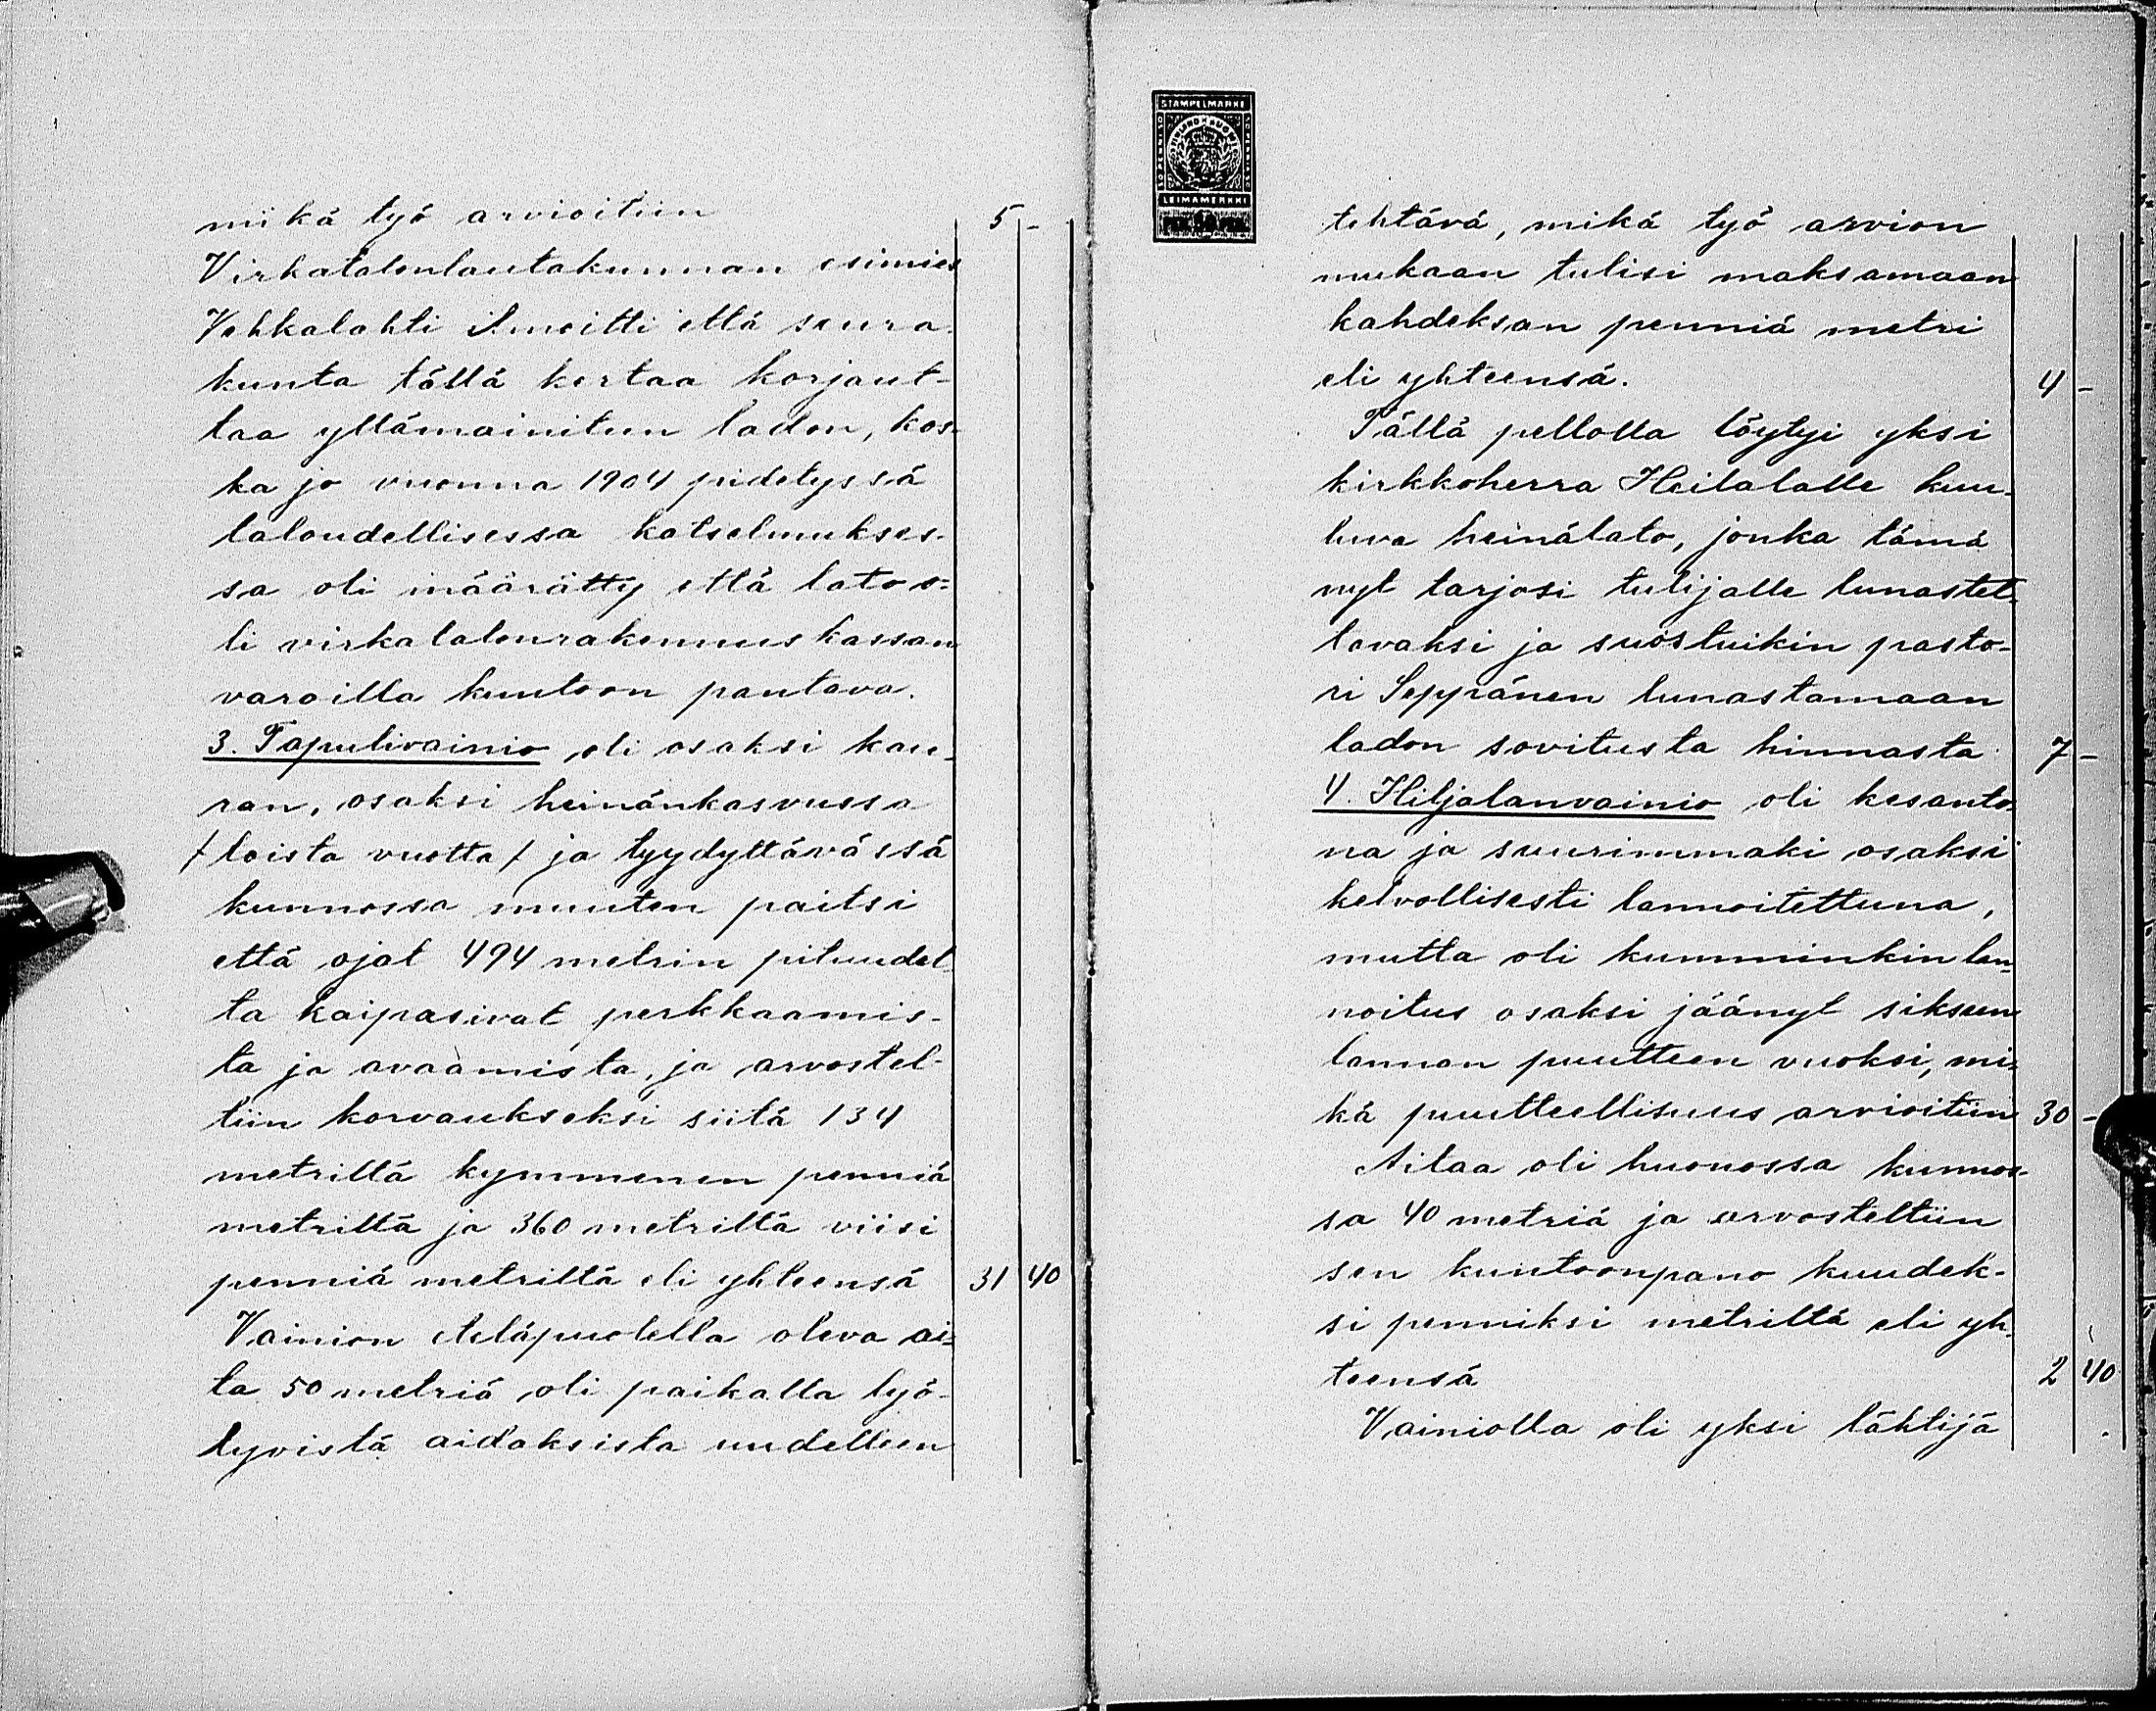 mikä työ arvioitiin 5 -
Virkatalonlautakunnan esimies
Vehkalahti ilmoitti että seura-
kunta tällä kertaa korjaut-
taa yllämainitun ladon, kos-
ka jo vuonna 1904 pidetyssä
taloudellisessa katselmukses-
sa oli määrätty että lato o-
li virkatalonrakennuskassan
varoilla kuntoon pantava.
3. Tapulivainio oli osaksi kau-
ran, osaksi heinänkasvussa
/toista vuotta/ ja tyydyttävässä
kunnossa muuten paitsi
että ojat 494 metrin pituudel-
ta kaipasivat perkkaamis-
ta ja avaamista, ja arvostel-
tiin korvaukseksi siitä 134
metriltä kymmenen penniä
metriltä ja 360 metriltä viisi
penniä metriltä eli yhteensä 31 40
Vainion eteläpuolella oleva ai-
ta 50 metriä oli paikalla löy-
tyvistä aidaksista uudelleen
STÄMPELMÄRKE
LEIMAMERKKI
tehtävä, mikä työ arvion
mukaan tulisi maksamaan
kahdeksan penniä metri
eli yhteensä. 4 -
Tällä pellolla löytyi yksi
kirkkoherra Heilalalle kuu-
luva heinälato, jonka tämä
nyt tarjosi tulijalle lunastet-
tavaksi ja suostuikin pasto-
ri Seppänen lunastamaan
ladon sovitusta hinnasta 7 -
4. Hiljalanvainio oli kesanto-
na ja suurimmaki osaksi
kelvollisesti lannoitettuna,
mutta oli kumminkin lan-
noitus osaksi jäänyt sikseen
lannan puutteen vuoksi, mi-
kä puutteellisuus arvioitiin 30 -
Aitaa oli huonossa kunnos-
sa 40 metriä ja arvosteltiin
sen kuntoonpano kuudek-
si penniksi metriltä eli yh-
teensä 2 40
Vainiolla oli yksi lähtijä